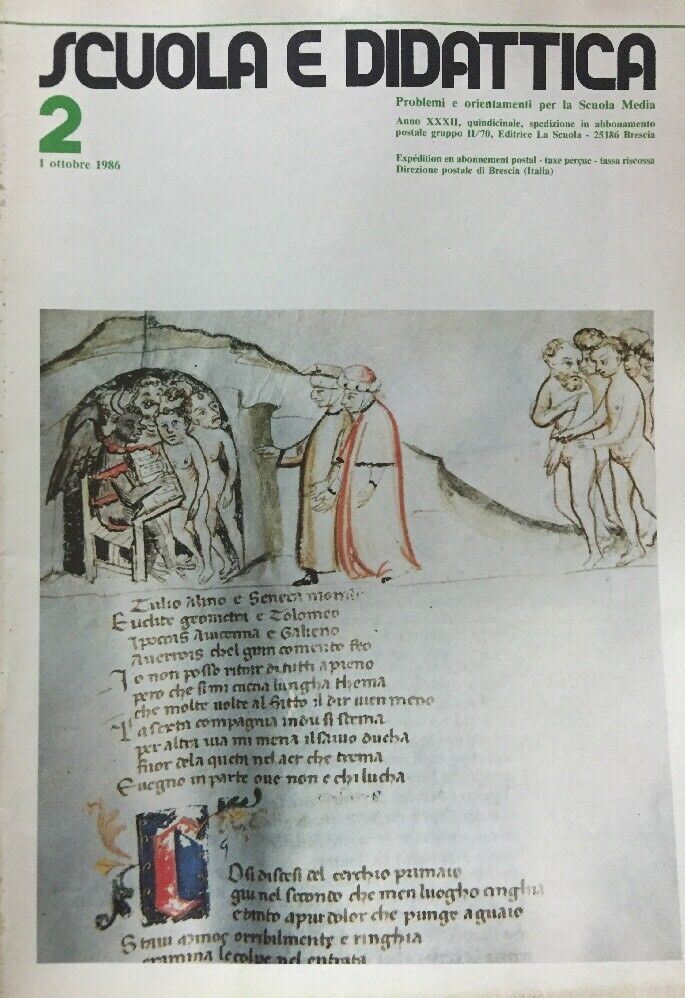 SCUOLA E DIDATTICA
2
1 ottobre 1986
Problemi e orientamenti per la Scuola Media
Anno XXXII, quindicinale, spedizione in abbonamento
postale gruppo II/70, Editrice La Scuola - 25186 Brescia
Expédition en abonnement postal - taxe perçue - tassa riscossa
Direzione postale di Brescia (Italia)
Tulio Alino e Seneca morale
Euclite geometra e Tolomeo
Ipocras Auicenna e Galieno
Auerrois chel gran comento feo
Io non posso ritrar di tutti a pieno
pero che si mi caccia lungha thema
che molte uolte al fatto il dir uien meno
La sexta compagnia in du si scema
per altra uia mi mena il sauio ducha
fuor dela queta nel aer che trema
E uegno in parte oue non e chi lucha
C
Osi discesi del cerchio primaio
giu nel secondo che men luogho cinghia
e tanto a piu dolor che punge a guaio
Stau Minos orribilmente e ringhia
examina le colpe nel entrata